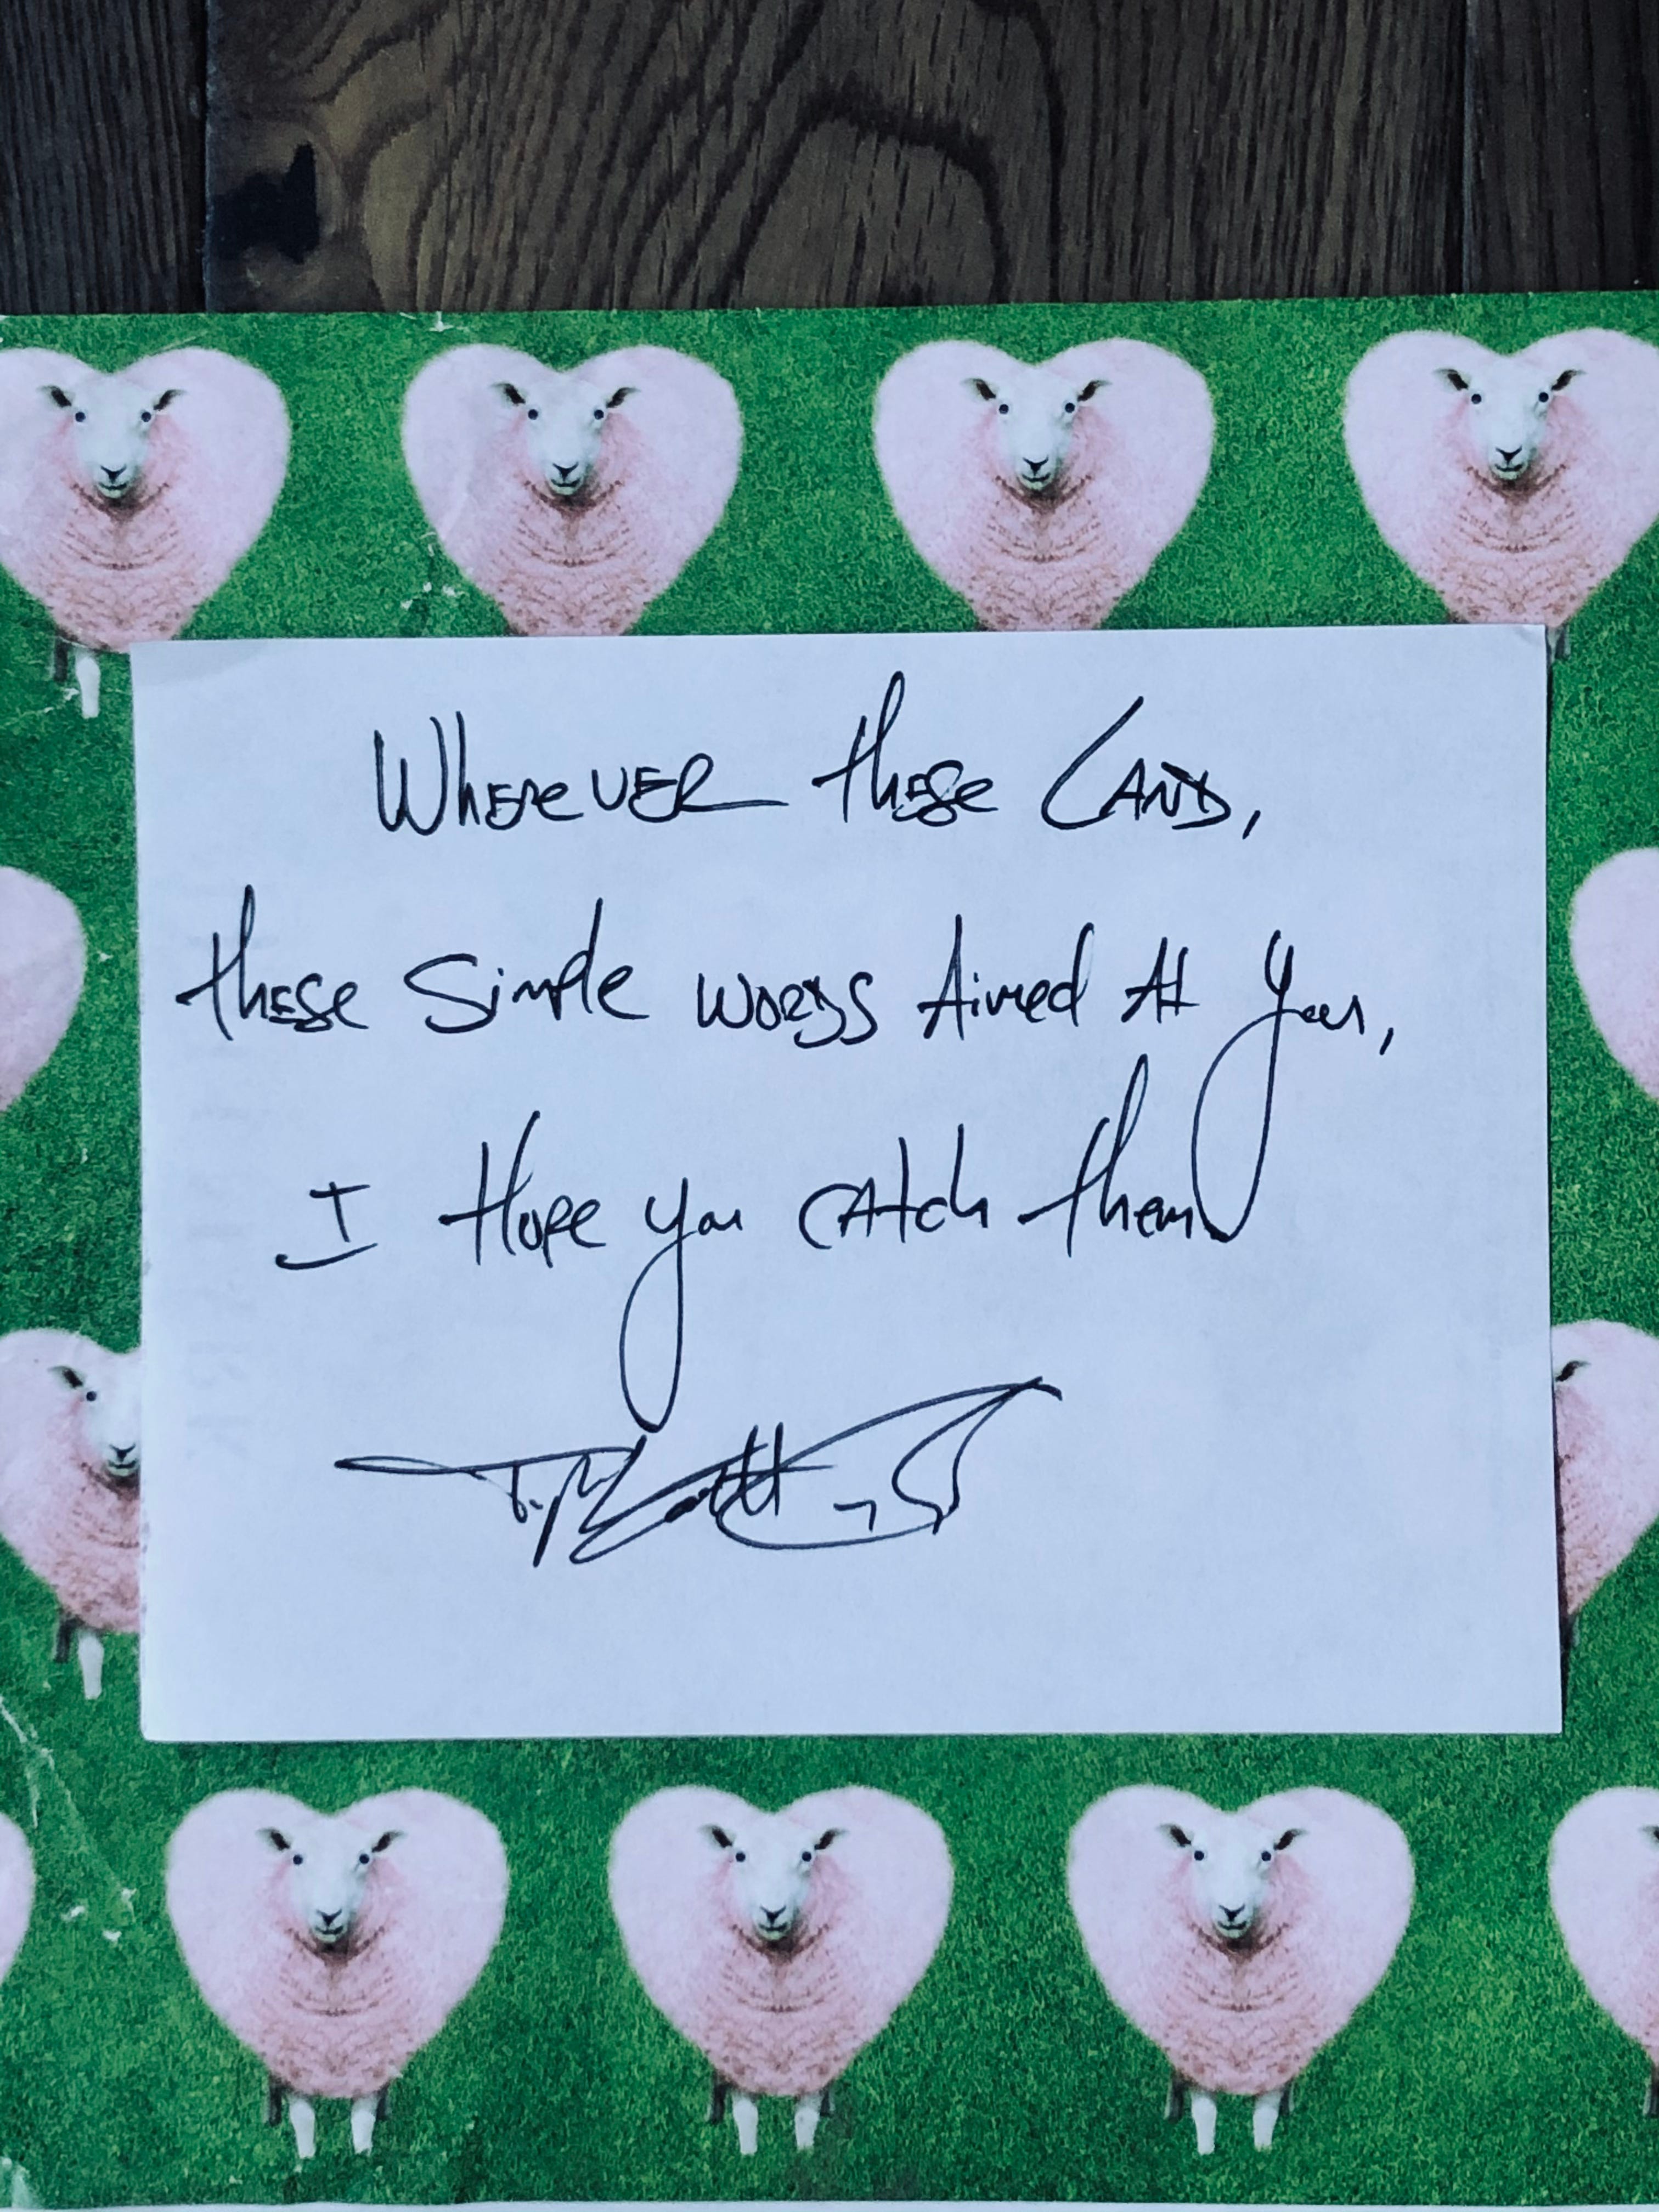 Wherever these Land,
these Simple words Aimed At you,
I Hope you catch them